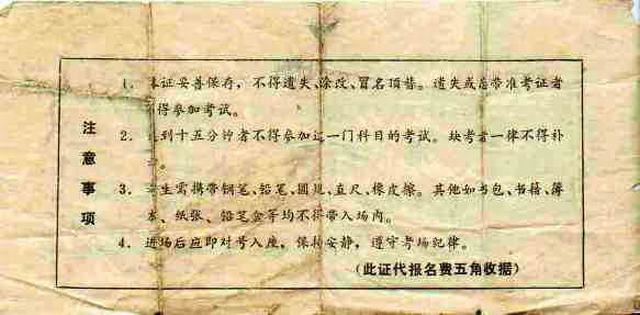 注意事项
1. 本证妥善保存，不得遗失、涂改、冒名顶替。遗失或忘带准考证者
得参加考试。
2. 到十五分钟者不得参加这一门科目的考试。缺考者一律不得补
。
3. 考生需携带钢笔、铅笔、圆规、直尺、橡皮擦。其他如书包、书籍、簿
本、纸张、铅笔盒等均不得带入场内。
4. 进场后应即对号入座，保持安静，遵守考场纪律。
（此证代报名费五角收据）